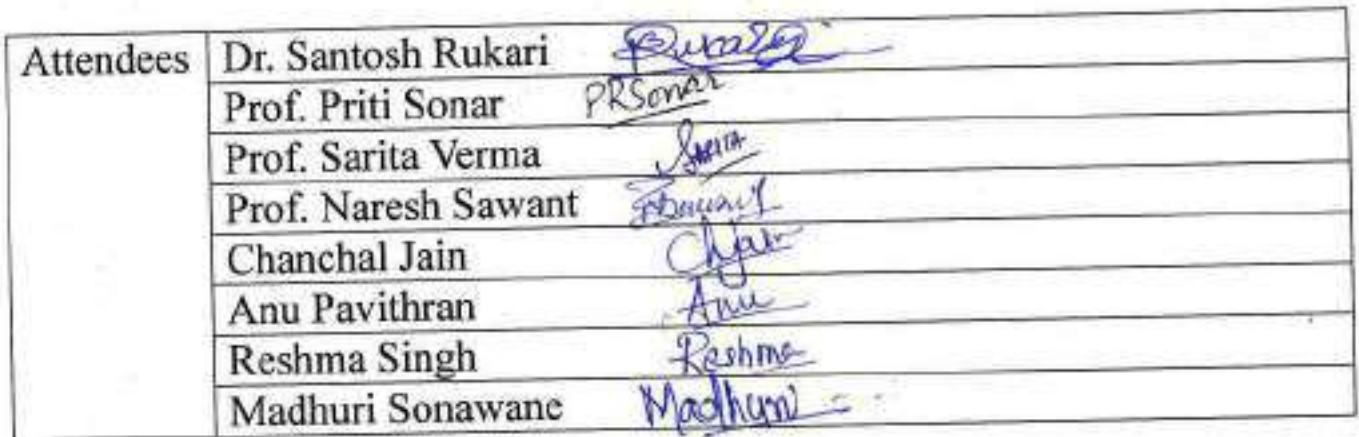 Attendees Dr. Santosh Rukari
Prof. Priti Sonar PRSonar
Prof. Sarita Verma SARITA
Prof. Naresh Sawant
Chanchal Jain CNJain
Anu Pavithran Anu
Reshma Singh Reshma
Madhuri Sonawane Madhuri